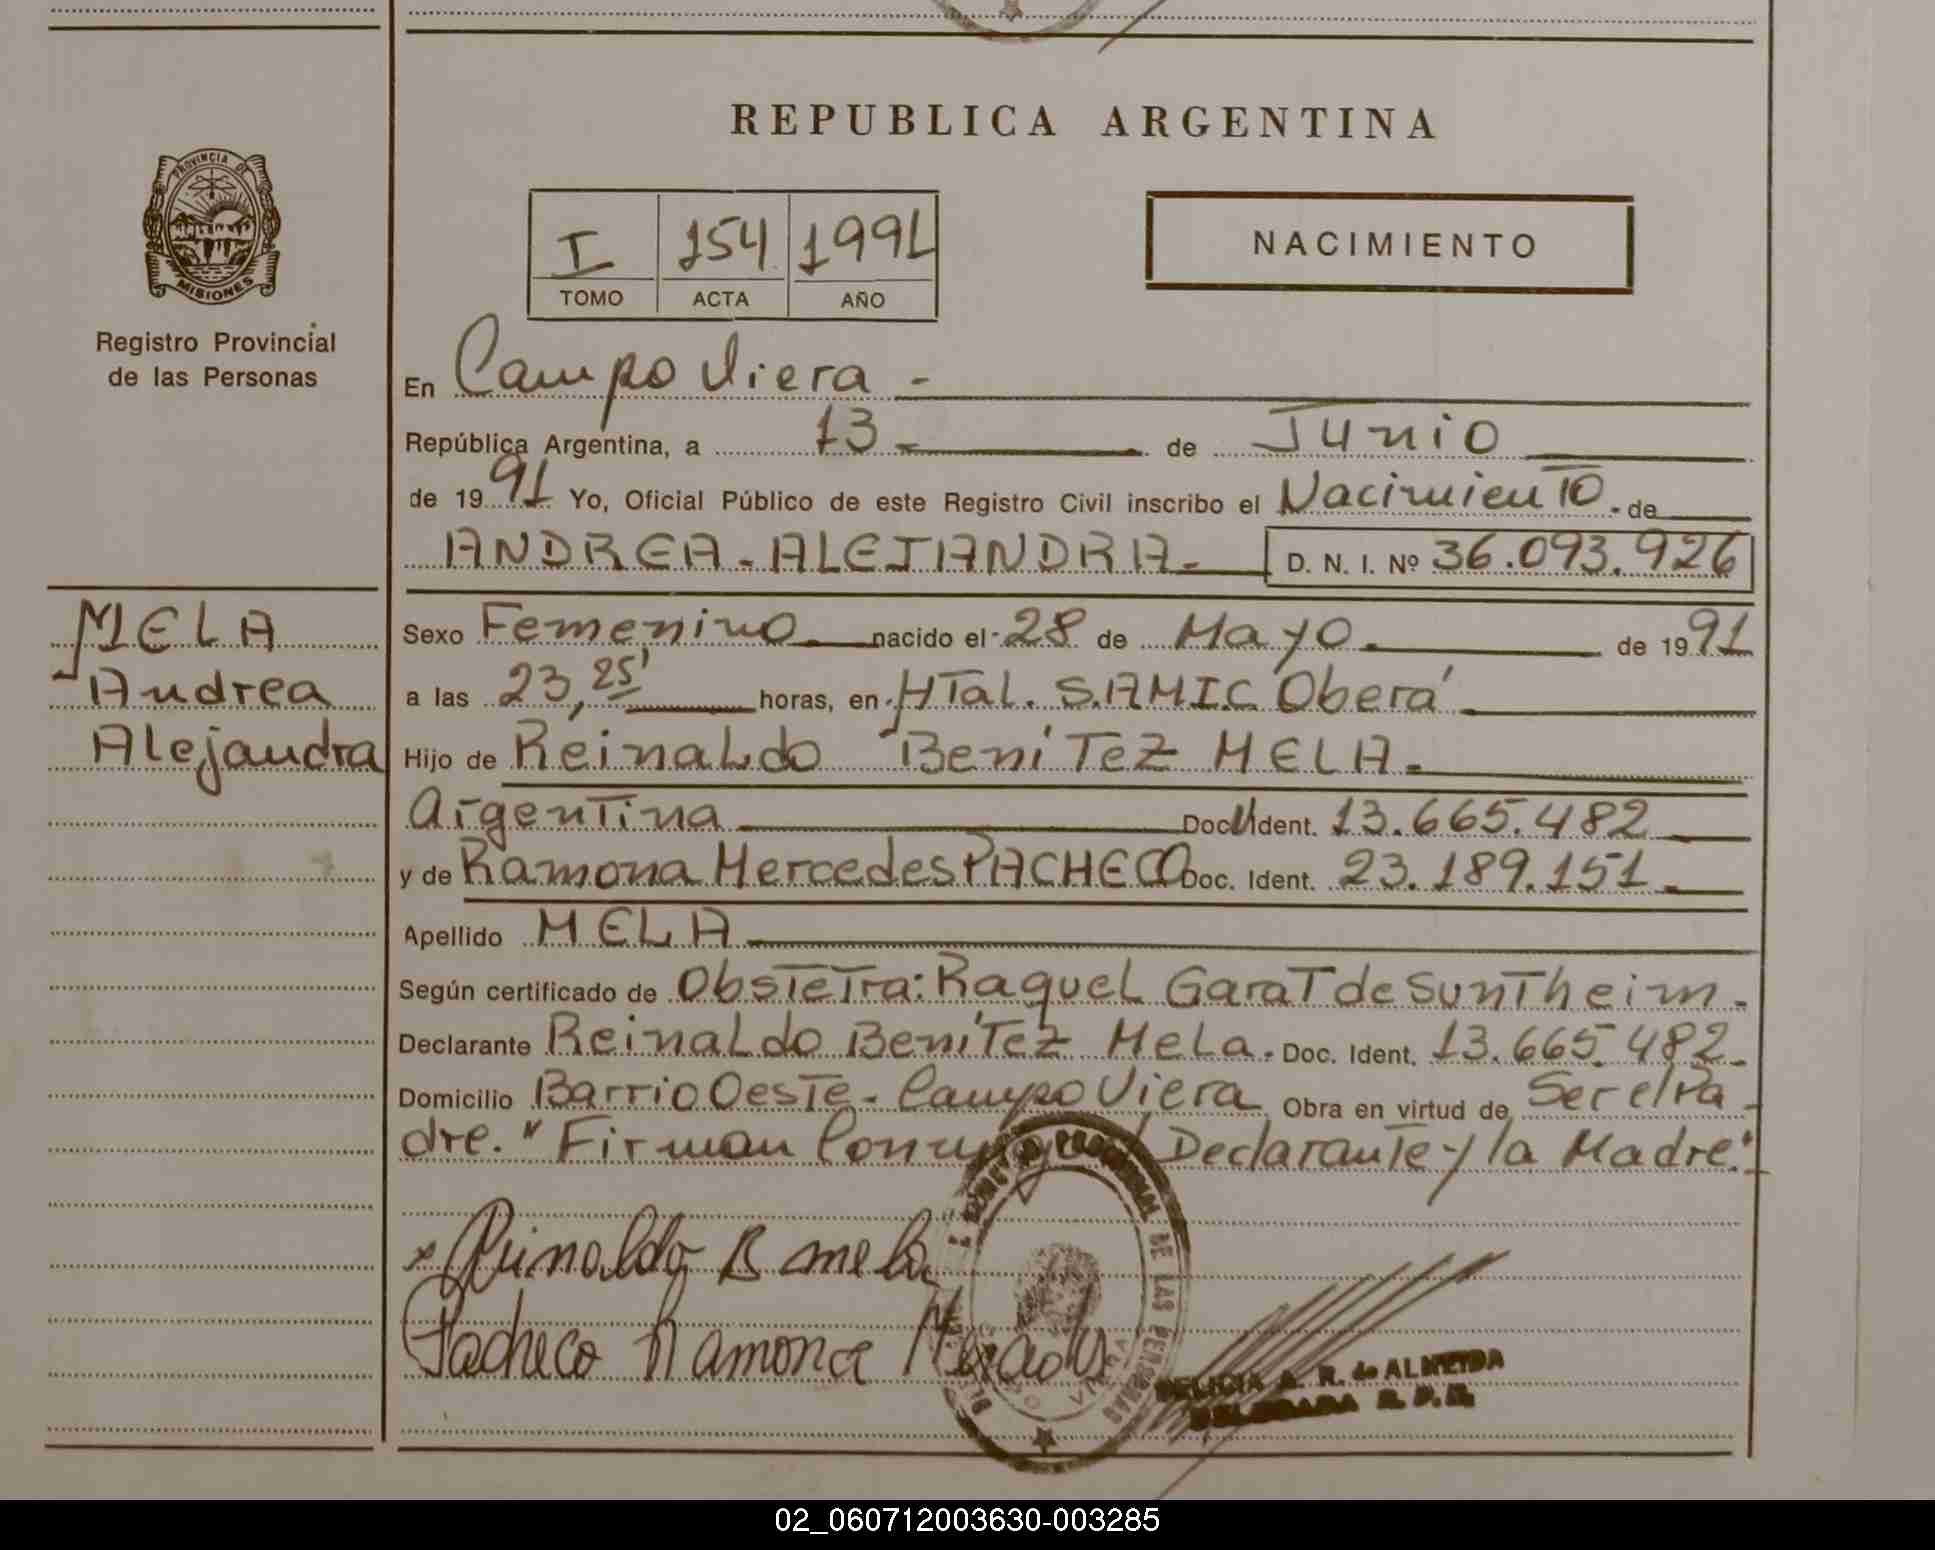 REPUBLICA ARGENTINA
PROVINCIA DE
MISIONES
Registro Provincial
de las Personas
I 154 1991
TOMO ACTA AÑO
NACIMIENTO
En Campo Viera -
República Argentina, a 13 - de Junio
de 1991 Yo, Oficial Público de este Registro Civil inscribo el Nacimiento - de
ANDREA - ALEJANDRA - D. N. I. Nº 36.093.926
MELA
Andrea
Alejandra
Sexo Femenino nacido el 28 de Mayo de 1991
a las 23,25' horas, en HTal. S.AM.I.C. Oberá
Hijo de Reinaldo Benítez MELA.
Argentina Doc. Ident. 13.665.482
y de Ramona Mercedes PACHECO Doc. Ident. 23.189.151
Apellido MELA
Según certificado de Obstetra: Raquel Garat de Suntheim.
Declarante Reinaldo Benítez Mela. Doc. Ident. 13.665.482
Domicilio Barrio Oeste - Campo Viera Obra en virtud de Ser el Pa-
dre. "Firman Conmigo el Declarante y la Madre".
Reinaldo B mela
Pacheco Ramona
DE LAS PERSONAS
VIERA
A. R. de ALMEIDA
DELEGADA R. P. P.
02_060712003630-003285